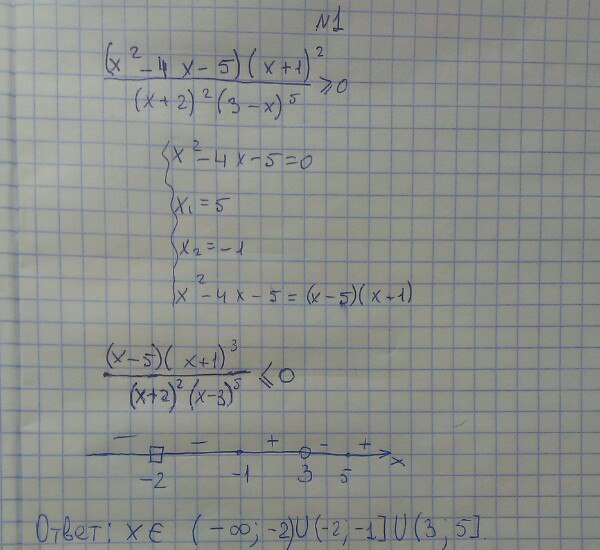 №1
(x² - 4x - 5)(x+1)² / (x+2)²(3-x)⁵ ≥ 0
x² - 4x - 5 = 0
x₁ = 5
x₂ = -1
x² - 4x - 5 = (x-5)(x+1)
(x-5)(x+1)³ / (x+2)²(x-3)⁵ ≤ 0
- - + - +
-2 -1 3 5 x
Ответ: x ∈ (-∞; -2)∪(-2; -1]∪(3; 5].